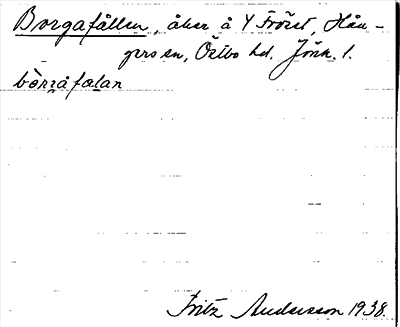 Borgafållen, åker å Y Fröset, Hån-
gers sn, Östbo hd. Jönk. l.
bòrgåfalan
Fritz Andersson 1938.